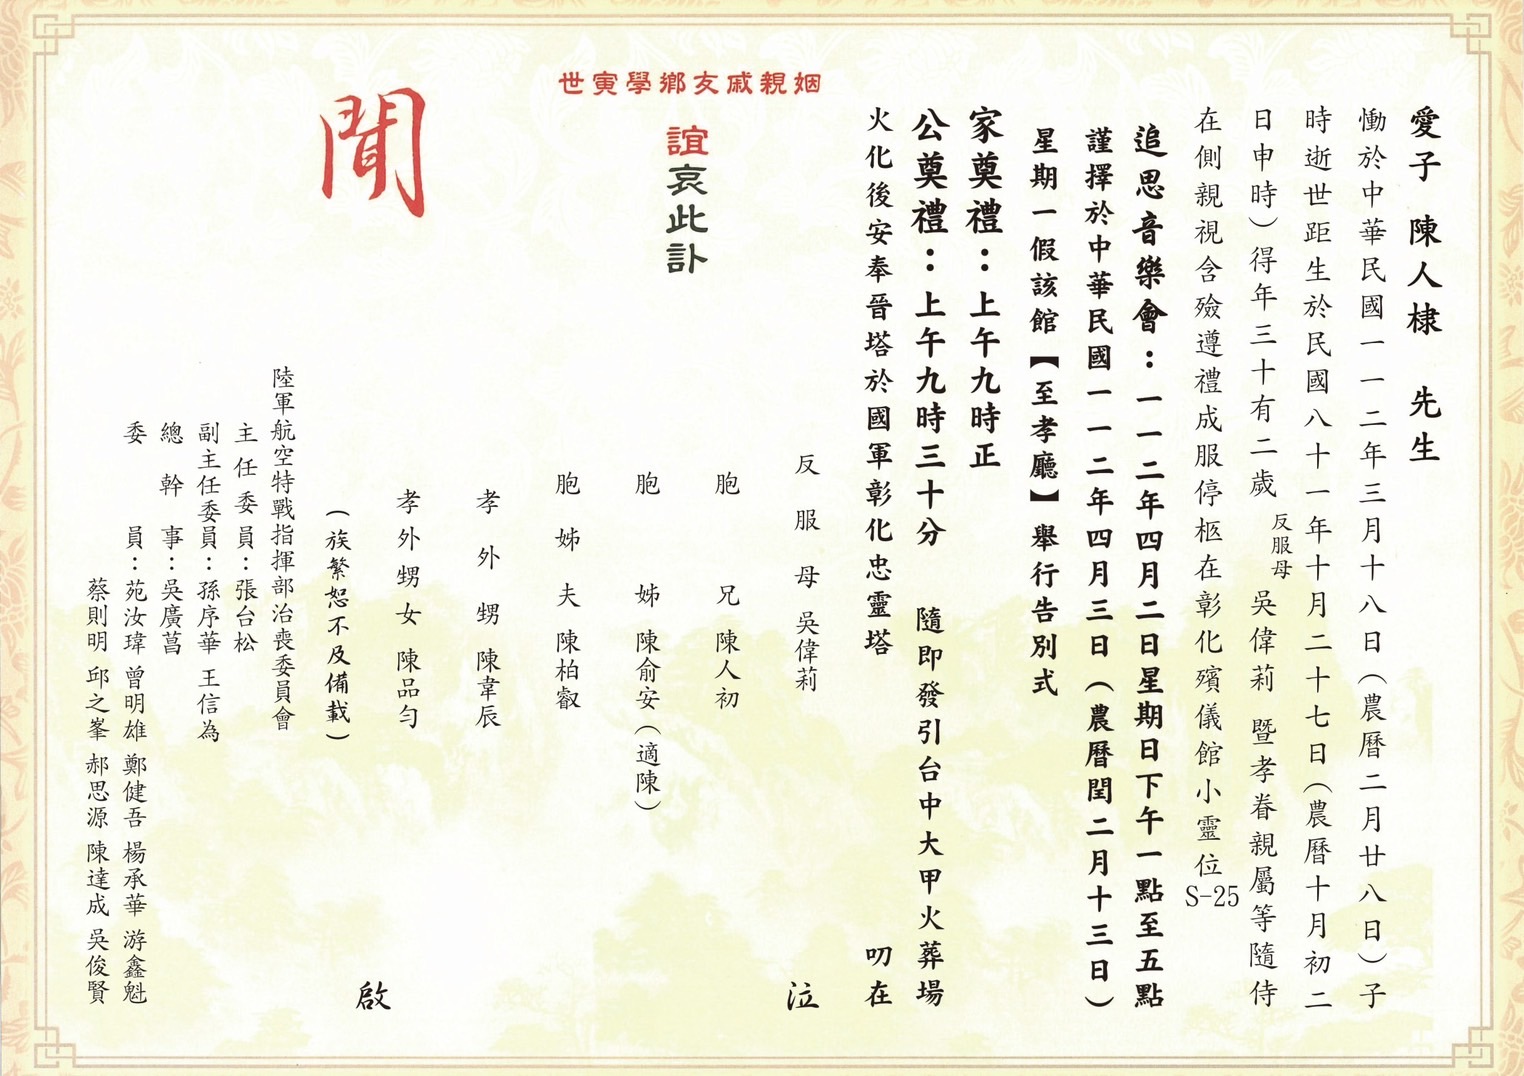 愛子 陳人棣 先生
慟於中華民國一一二年三月十八日（農曆二月廿八日）子
時逝世距生於民國八十一年十月二十七日（農曆十月初二
日申時）得年三十有二歲 反服母 吳偉莉 暨孝眷親屬等隨侍
在側親視含殮遵禮成服停柩在彰化殯儀館小靈位S-25
追思音樂會：一一二年四月二日星期日下午一點至五點
謹擇於中華民國一一二年四月三日（農曆閏二月十三日）
星期一假該館【至孝廳】舉行告別式
家奠禮：上午九時正
公奠禮：上午九時三十分 隨即發引台中大甲火葬場
火化後安奉晉塔於國軍彰化忠靈塔 叨在
姻親戚友鄉學寅世
誼哀此訃
聞
反服母 吳偉莉 泣
胞兄 陳人初
胞姊 陳俞安（適陳）
胞姊夫 陳柏叡
孝外甥 陳韋辰
孝外甥女 陳品勻
（族繁恕不及備載） 啟
陸軍航空特戰指揮部治喪委員會
主任委員：張台松
副主任委員：孫序華 王信為
總幹事：吳廣菖
委員：苑汝瑋 曾明雄 鄭健吾 楊承華 游鑫魁
蔡則明 邱之峯 郝思源 陳達成 吳俊賢